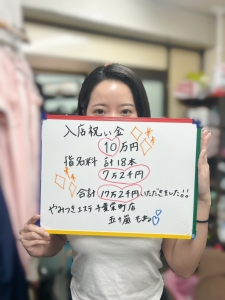 入店祝い金
10万円
指名料 計18本
7万2千円
合計 17万2千円いただきました!!
やみつきエステ千葉栄町店
五十嵐 もあ